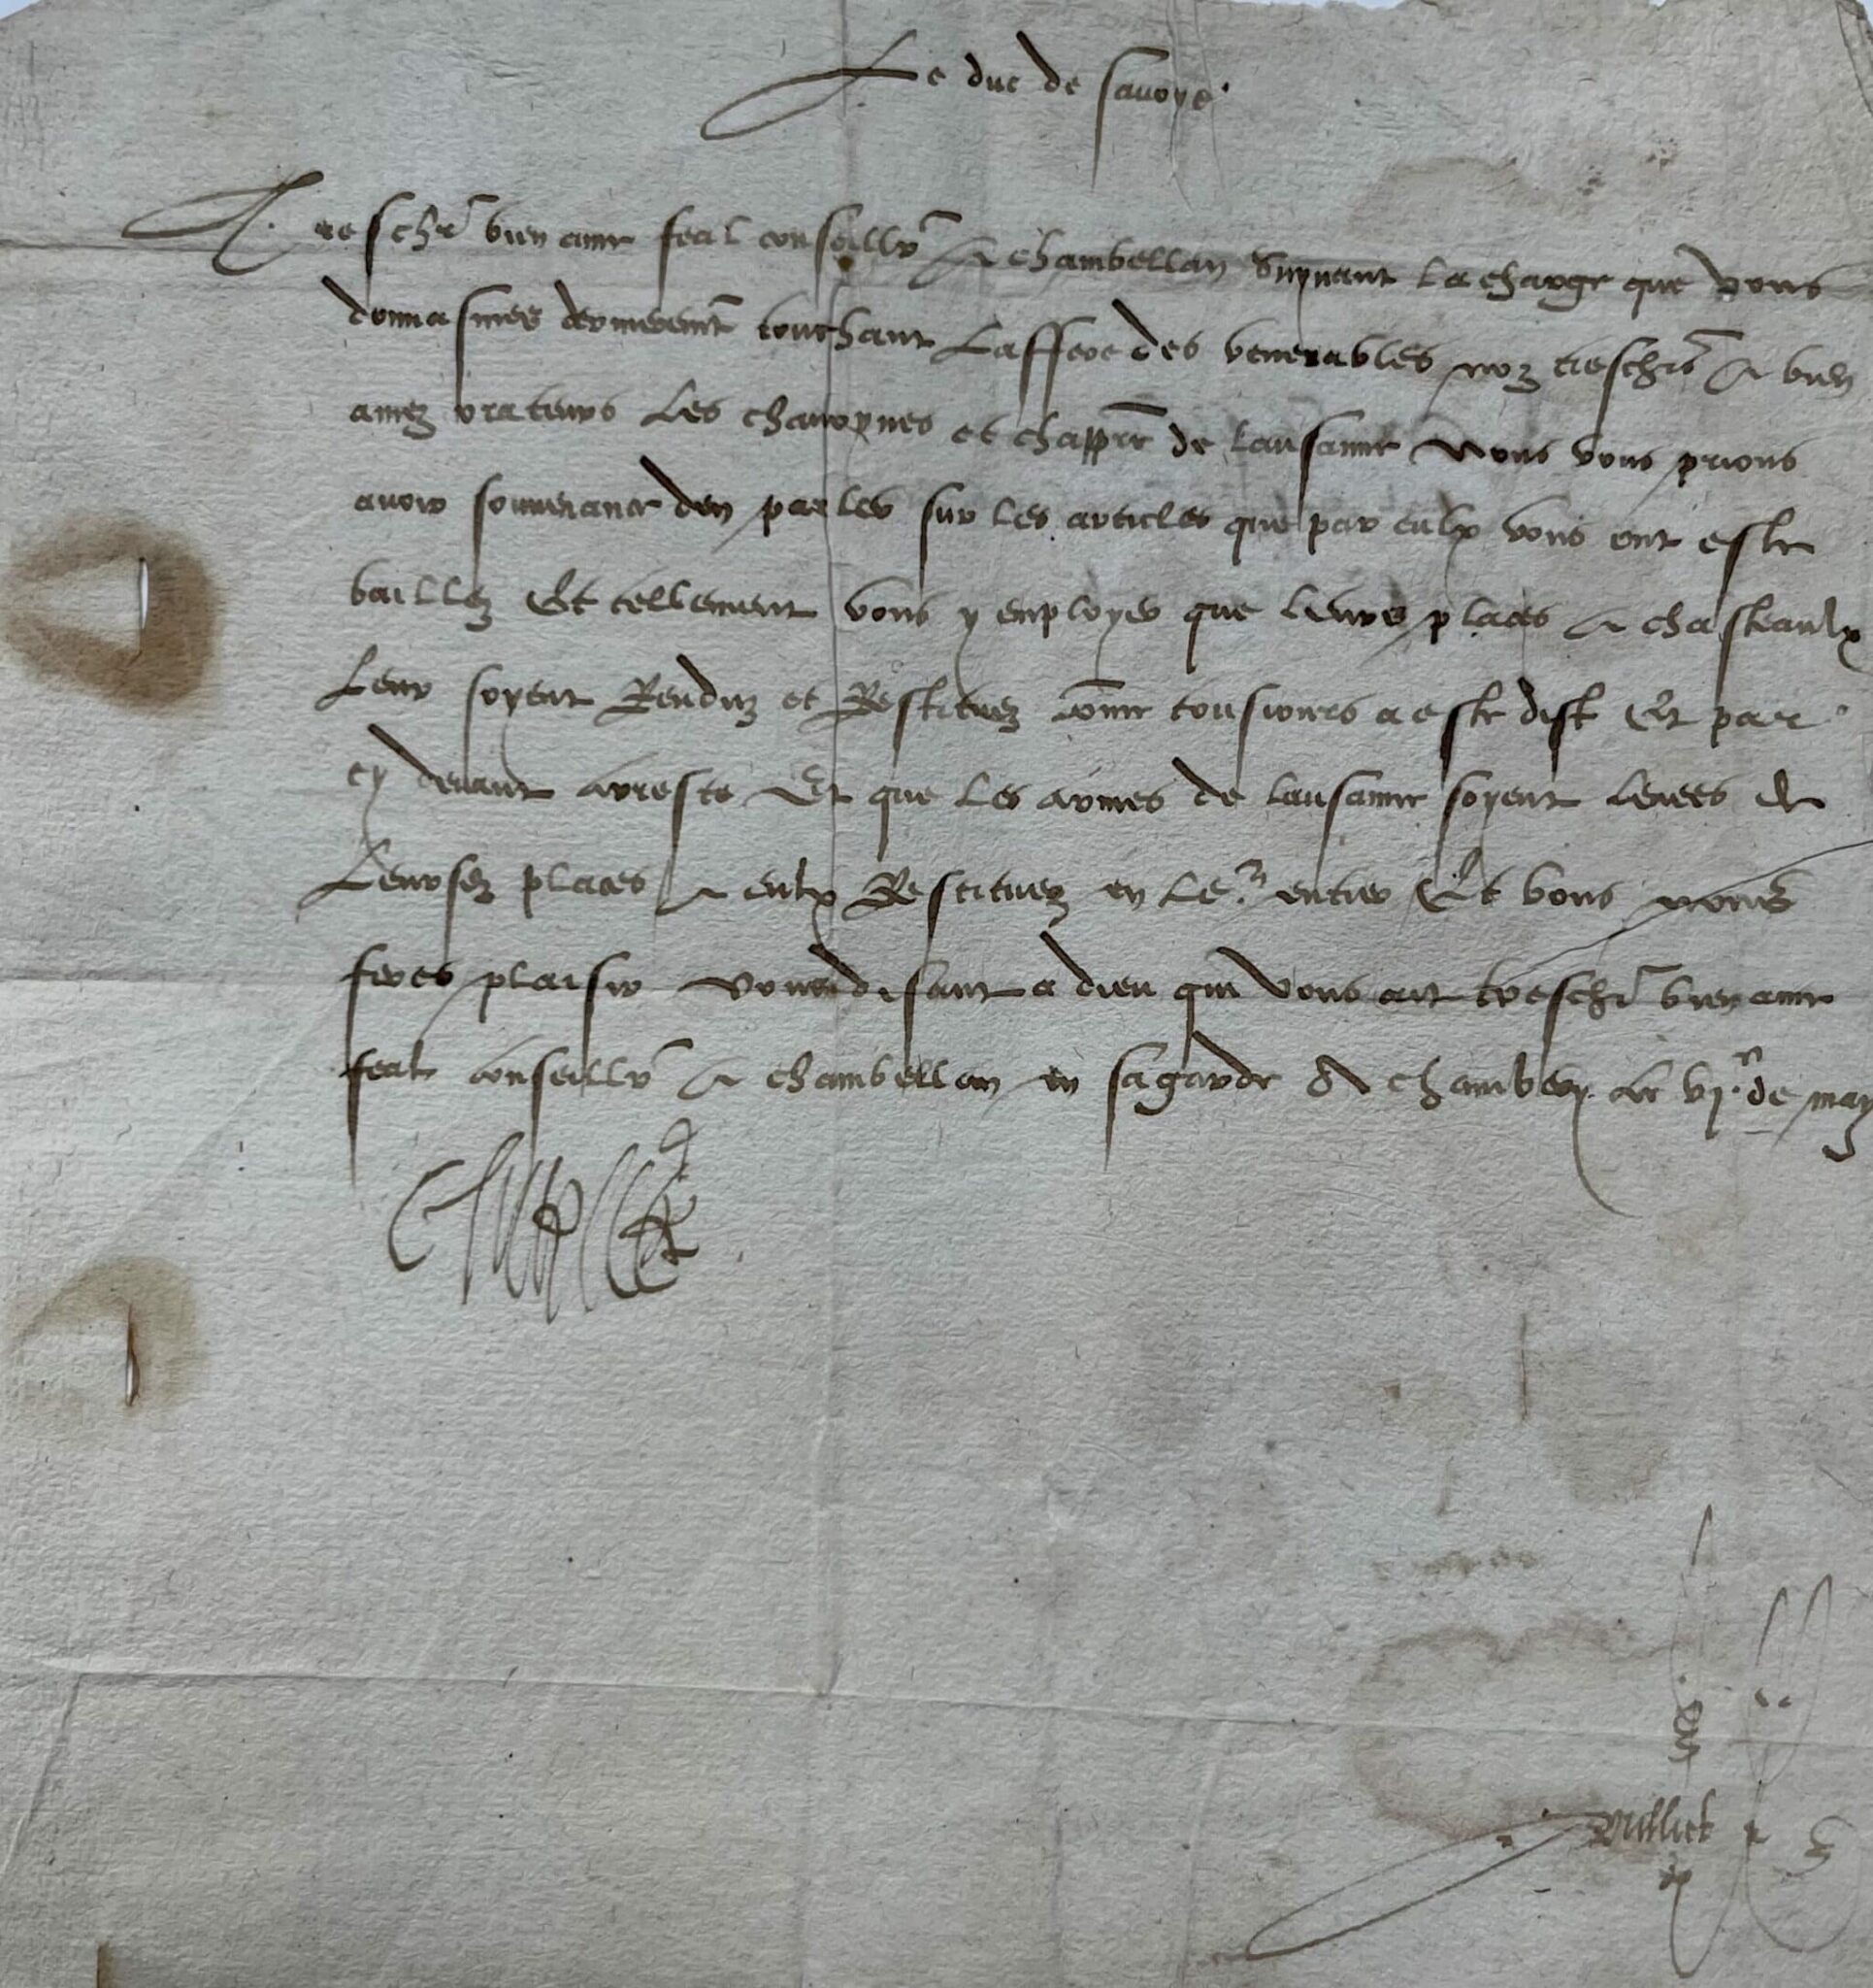 Le duc de savoye
Tres chr bien ame feal conseillr & chambellan Suyvant la charge que vous
donnasmes dernieremt touchant Laffere des venerables noz treschrs & bien
amez orateurs Les chanoynes et chappre de Lausanne Nous vous prions
avoir souvenance den parler sur les articles que par eulx vous ont este
baillez Et tellement vous y employer que leurs places & chasteaulx
Leur soyent Renduz et Restituez come tousiours a este dist Et par
cy devant arreste Et que les armes de Lausanne soyent levees de
Leursd places & eulx Restituez en Le entier Et vous nous
feres plaisir Vous disant a dieu qui vous ait treschr bien ame
feal conseillr & chambellan en sa garde De chambery Le vj de may
Vulliet